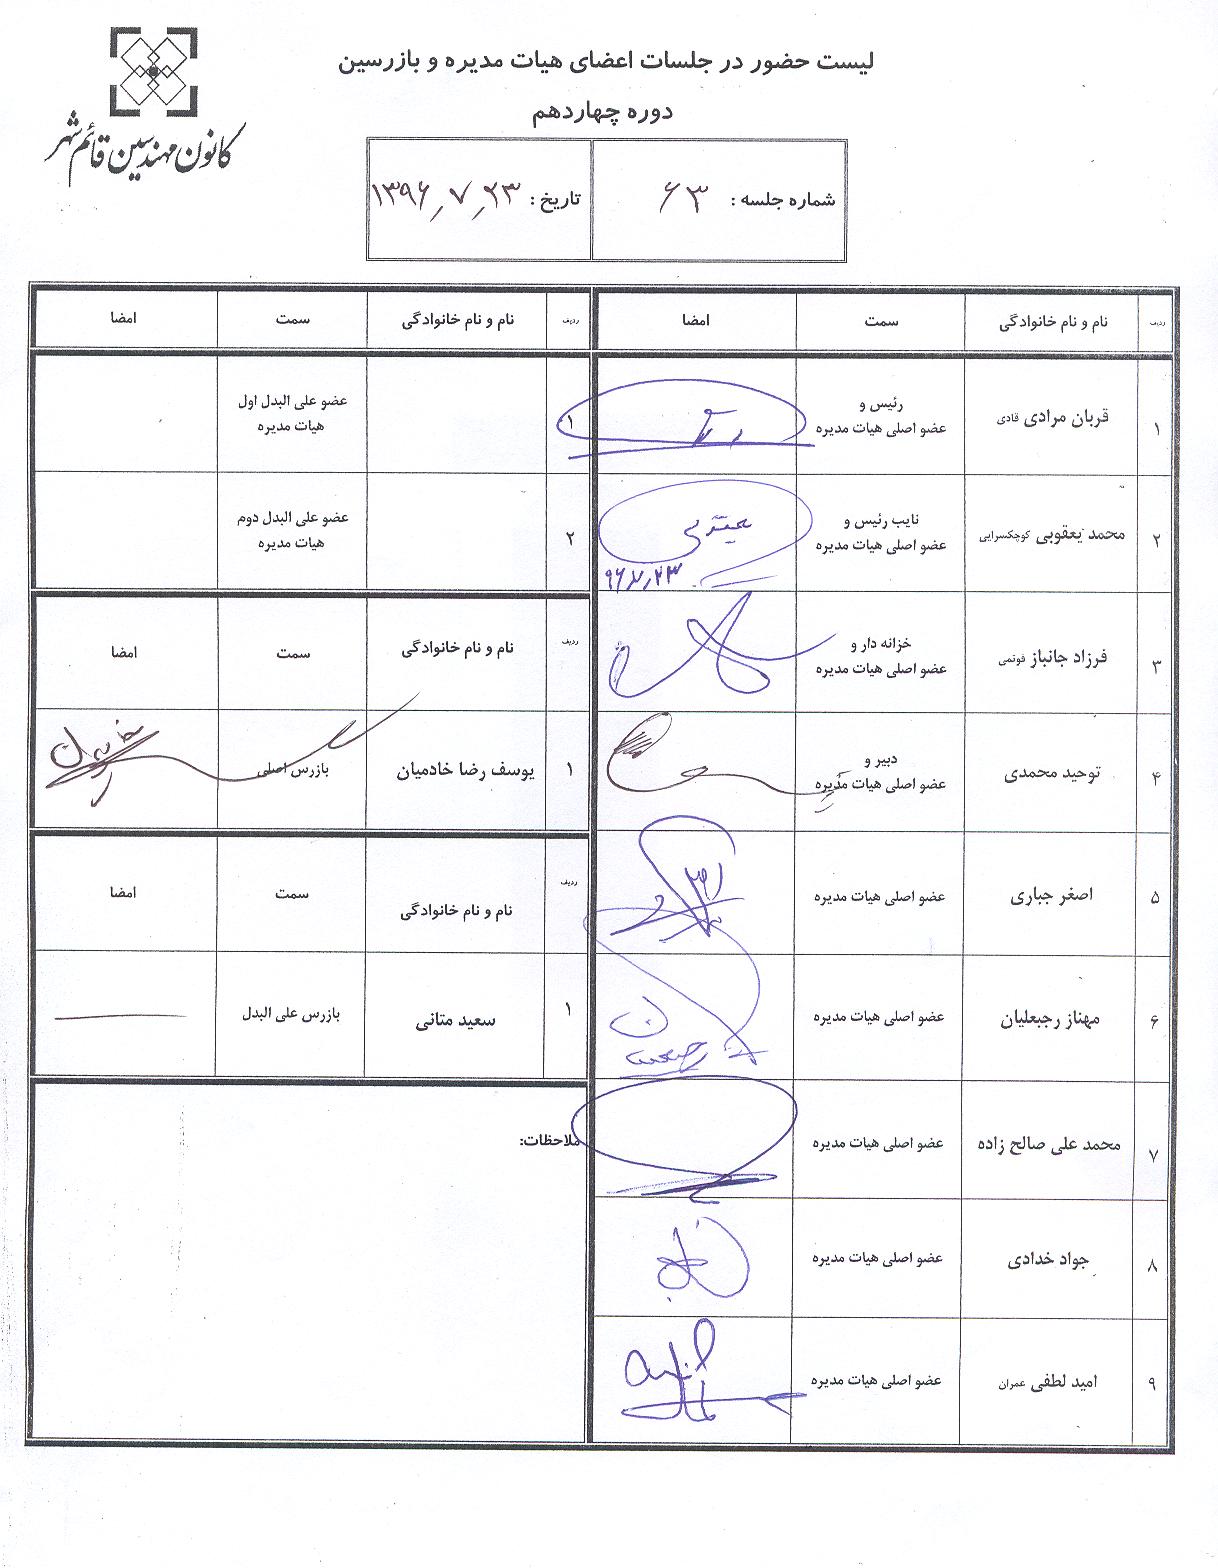 لیست حضور در جلسات اعضای هیات مدیره و بازرسین
دوره چهاردهم
کانون مهندسین قائم شهر
شماره جلسه : ۶۳
تاریخ : ۱۳۹۶٫۷٫۲۳
ردیف نام و نام خانوادگی سمت امضا
۱ قربان مرادی قادی رئیس و
عضو اصلی هیات مدیره
۲ محمد یعقوبی کوچکسرایی نایب رئیس و
عضو اصلی هیات مدیره
۹۶٫۷٫۲۳
۳ فرزاد جانباز فوتمی خزانه دار و
عضو اصلی هیات مدیره
۴ توحید محمدی دبیر و
عضو اصلی هیات مدیره
۵ اصغر جباری عضو اصلی هیات مدیره
۶ مهناز رجبعلیان عضو اصلی هیات مدیره
۷ محمد علی صالح زاده عضو اصلی هیات مدیره
۸ جواد خدادی عضو اصلی هیات مدیره
۹ امید لطفی عمران عضو اصلی هیات مدیره
ردیف نام و نام خانوادگی سمت امضا
۱ عضو علی البدل اول
هیات مدیره
۲ عضو علی البدل دوم
هیات مدیره
ردیف نام و نام خانوادگی سمت امضا
۱ یوسف رضا خادمیان بازرس اصلی
ردیف نام و نام خانوادگی سمت امضا
۱ سعید متانی بازرس علی البدل
ملاحظات: